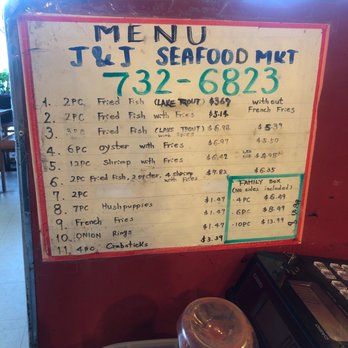 MENU
J&J SEAFOOD MKT
732-6823
without French Fries
1. 2PC Fried Fish (LAKE TROUT) $3.69
2. 2PC Fried Fish with Fries $5.14
3. 3PC Fried Fish (LAKE TROUT) $6.98 $5.39
4. 6PC oyster with Fries $6.97
5. 12PC Shrimp with Fries
6. 2PC Fried Fish, 2 oyster, 4 shrimp with Fries $7.83 $6.35
7. 2PC
8. 7PC Hushpuppies $1.47
9. French Fries $1.47
10. ONION Rings $1.47
11. 4PC Crabsticks $3.39
FAMILY BOX
(NO sides included)
4PC $6.49
6PC $8.99
10PC $13.99